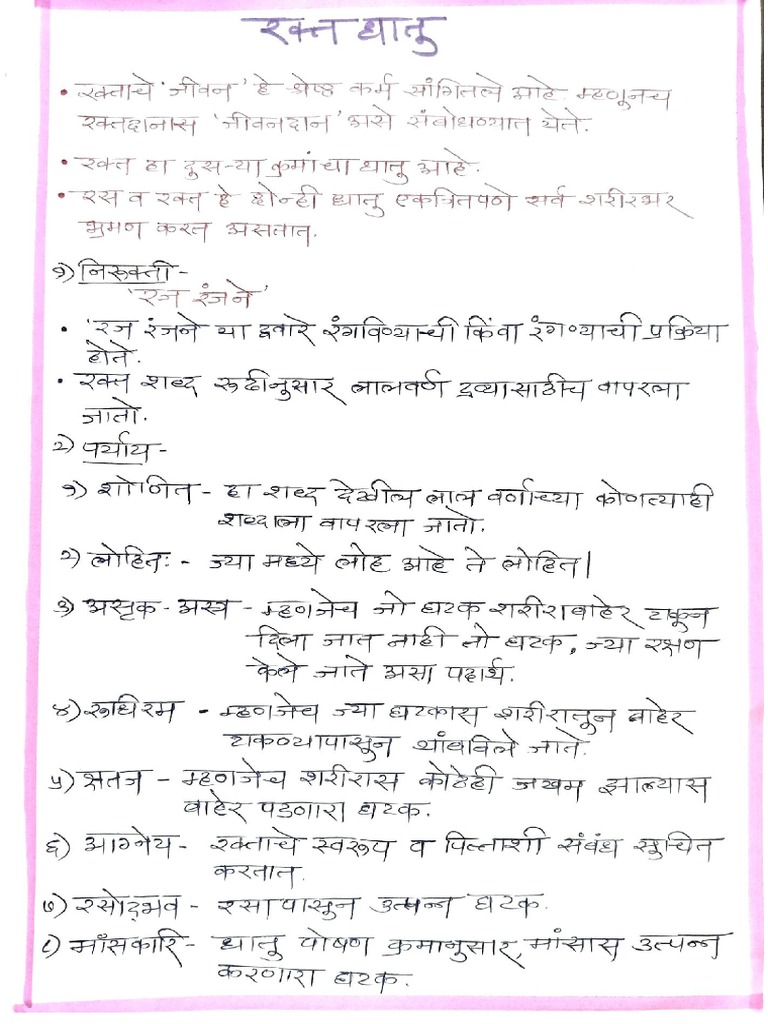 रक्त धातु
• रक्ताचे 'जीवन' हे श्रेष्ठ कर्म सांगितले आहे. म्हणूनच
रक्तदानास 'जीवनदान' असे संबोधण्यात येते.
• रक्त हा दुसऱ्या क्रमांचा धातु आहे.
• रस व रक्त हे दोन्ही धातु एकत्रितपणे सर्व शरीरभर
भ्रमण करत असतात.
१) निरुक्ती -
'रज रंजने'
• 'रज रंजने या द्वारे रंगविण्याची किंवा रंगण्याची प्रक्रिया
होते.
• रक्त शब्द रूढीनुसार लालवर्ण द्रव्यासाठीच वापरला
जातो.
२) पर्याय -
१) शोणित - हा शब्द देखील लाल वर्णाच्या कोणत्याही
शब्दाला वापरला जातो.
२) लोहितः - ज्या मध्ये लोह आहे ते लोहित|
३) असृक - अस्त्र - म्हणजेच जो घटक शरीराबाहेर टाकून
दिला जात नाही तो घटक, ज्या रक्षण
केले जाते असा पदार्थ.
४) रूधिरम - म्हणजेच ज्या घटकास शरीरातून बाहेर
टाकण्यापासून थांबविले जाते.
५) क्षतज - म्हणजेच शरीरास कोठेही जखम झाल्यास
बाहेर पडणारा घटक.
६) आग्नेय - रक्ताचे स्वरूप व पित्ताशी संबंध सुचित
करतात.
७) रसोद्भव - रसापासुन उत्पन्न घटक.
८) माँसकारि - धातु पोषण क्रमानुसार, मांसास उत्पन्न
करणारा घटक.